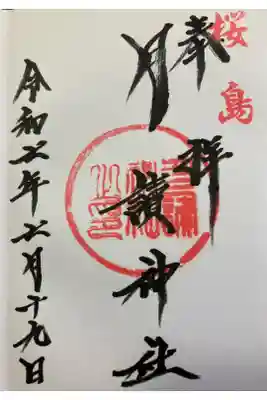 桜島
奉拝
月讀神社
令和六年六月十九日